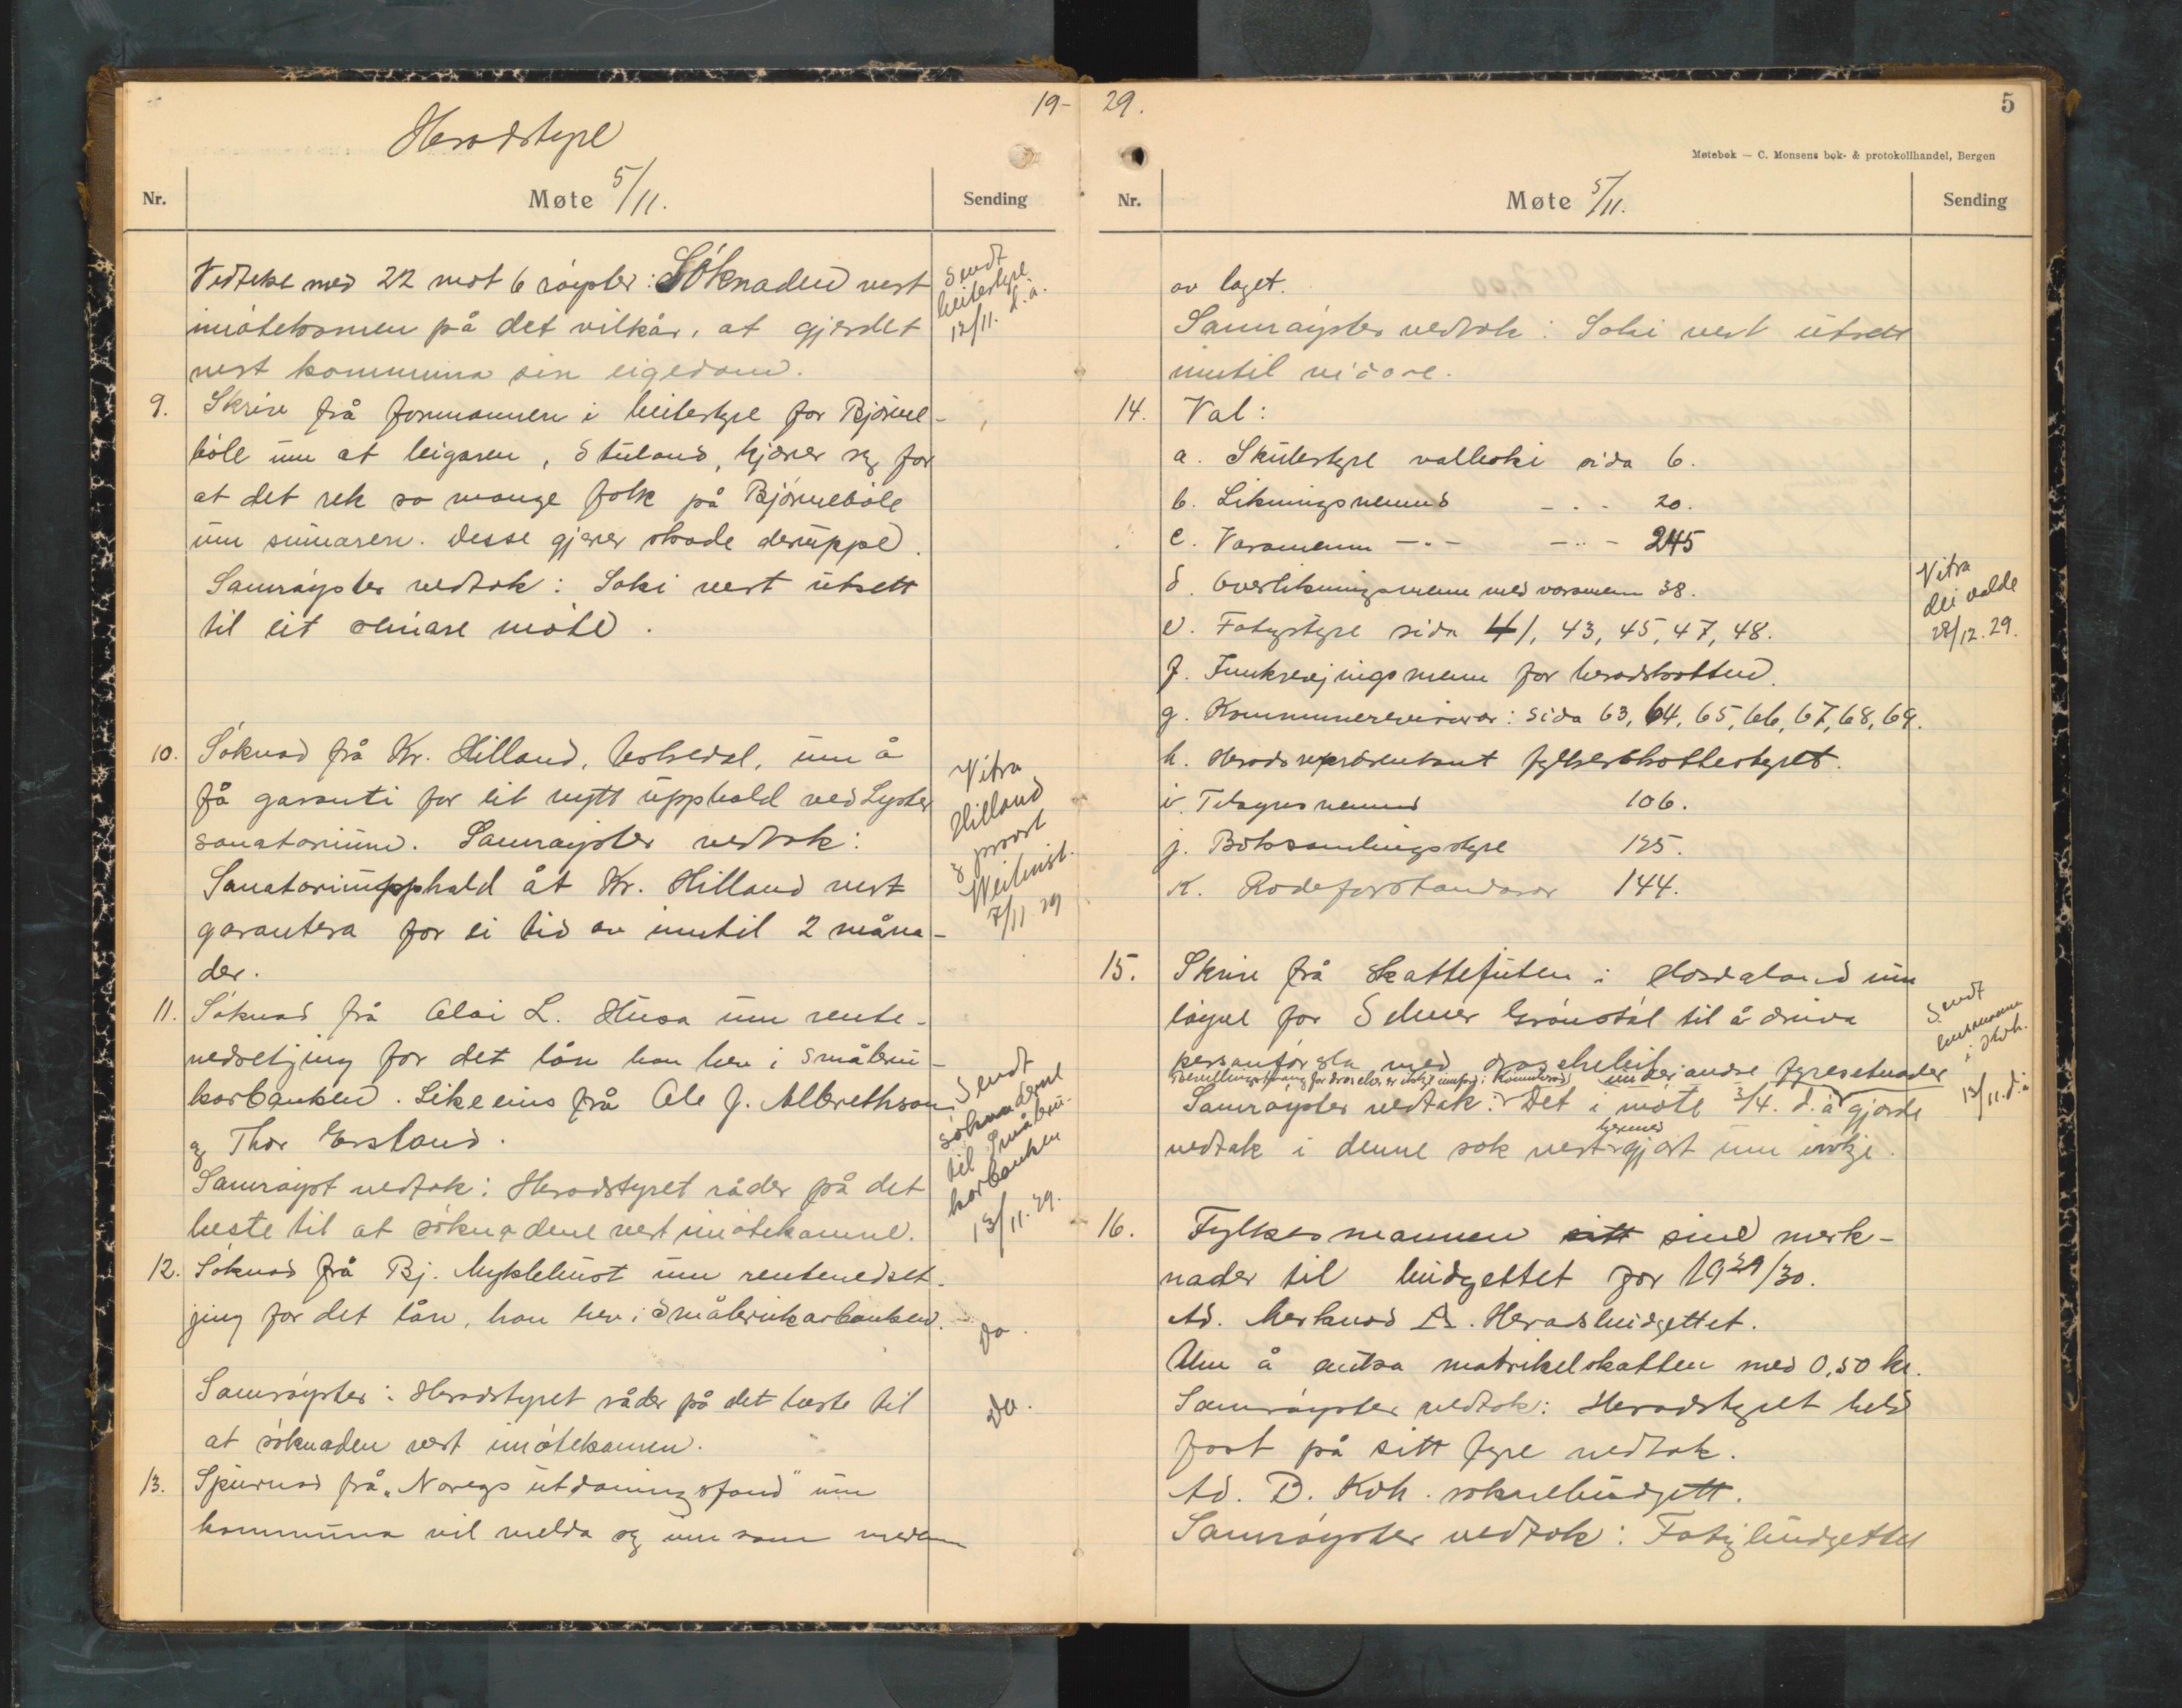 Heradstyre
19-
Nr.
Møte 5/11.
Sending
Vedteke med 22 mot 6 røyster: Søknaden vert
imøtekomen på det vilkår, at gjerdet
vert kommuna sin eigedom.
Sendt
beitestyre
12/11. d.å.
9. Skriv frå formannen i beitestyre for Bjørne-
bøle um at leigaren, Stuland, kjærer seg for
at det rek so mange folk på Bjørnebøle
um sumaren. Desse gjerer skade deruppe.
Samrøystes vedtok: Saki vert utsett
til eit seinare møte.
10. Søknad frå Kr. Hilland, um å
få garanti for eit nytt upphald ved Lyster
sanatorium. Samrøystes vedtok:
Sanatorieupphald åt Kr. Hilland vert
garantera for ei tid av inntil 2 måna-
der.
Vitra
Hilland
& prost
7/11 29
11. Søknad frå Alai L. Husa um rente-
nedsetjing for det lån han hev i småbru-
karbanken. Likeeins frå Ole J. Albrethson
og Thor Ersland.
Samrøyst vedtok: Heradstyret råder på det
beste til at søknadene vert imøtekomne.
Sendt
søknadene
til Småbru-
karbanken
13/11.29.
12. Søknad frå Bj. Myklebust um rentenedset-
jing for det lån, han hev i Småbrukarbanken.
Do.
Samrøystes: Heradstyret råder på det beste til
at søknaden vert imøtekomen.
Do.
13. Spurnad frå "Noregs utdaningsfond" um
kommuna vil melda seg inn som medlem
29.
5
Møtebok — C. Monsens bok- & protokollhandel, Bergen
Nr.
Møte 5/11.
Sending
av laget.
Samrøystes vedtok: Saki vert utsett
inntil vidare.
14. Val:
a. Skulestyre valboki sida 6.
b. Likningsnemnd - . - 20.
c. Varamenn - . - - . - 245
d. Overlikningsmenn med varamenn 38.
e. Fatigstyre sida 41, 43, 45, 47, 48.
f. Innkrevjingsmenn for heradskatten.
g. Kommunerevisorar: sida 63, 64, 65, 66, 67, 68, 69.
h. Heradsrepresentant fylkesskattestyret.
i. Tilsynsnemnd 106.
j. Boksamlingsstyre 125.
k. Rodeforstandarar 144.
Vitra
dei valde
28/12.29.
15. Skriv frå skattefuten i Hordaland um
løyve for Selmer Grønstøl til å driva
personførsla med drosjebil
under andre fyresetnader
Samrøystes vedtok: Det i møte 3/4. d.å gjorde
hermed
vedtak i denne sak vert gjort um inkje.
Sendt
lensmannen
i Kvh.
13/11. d.å
16. Fylkesmannen sitt sine merk-
nader til budgettet for 1929/30.
Ad. Merknad A. Heradsbudgettet.
Um å auka matrikelskatten med 0,50 kr.
Samrøystes vedtok: Heradstyret held
fast på sitt fyre vedtak.
Ad. B. Kvh. soknebudgett.
Samrøystes vedtok: Fatigbudgettet